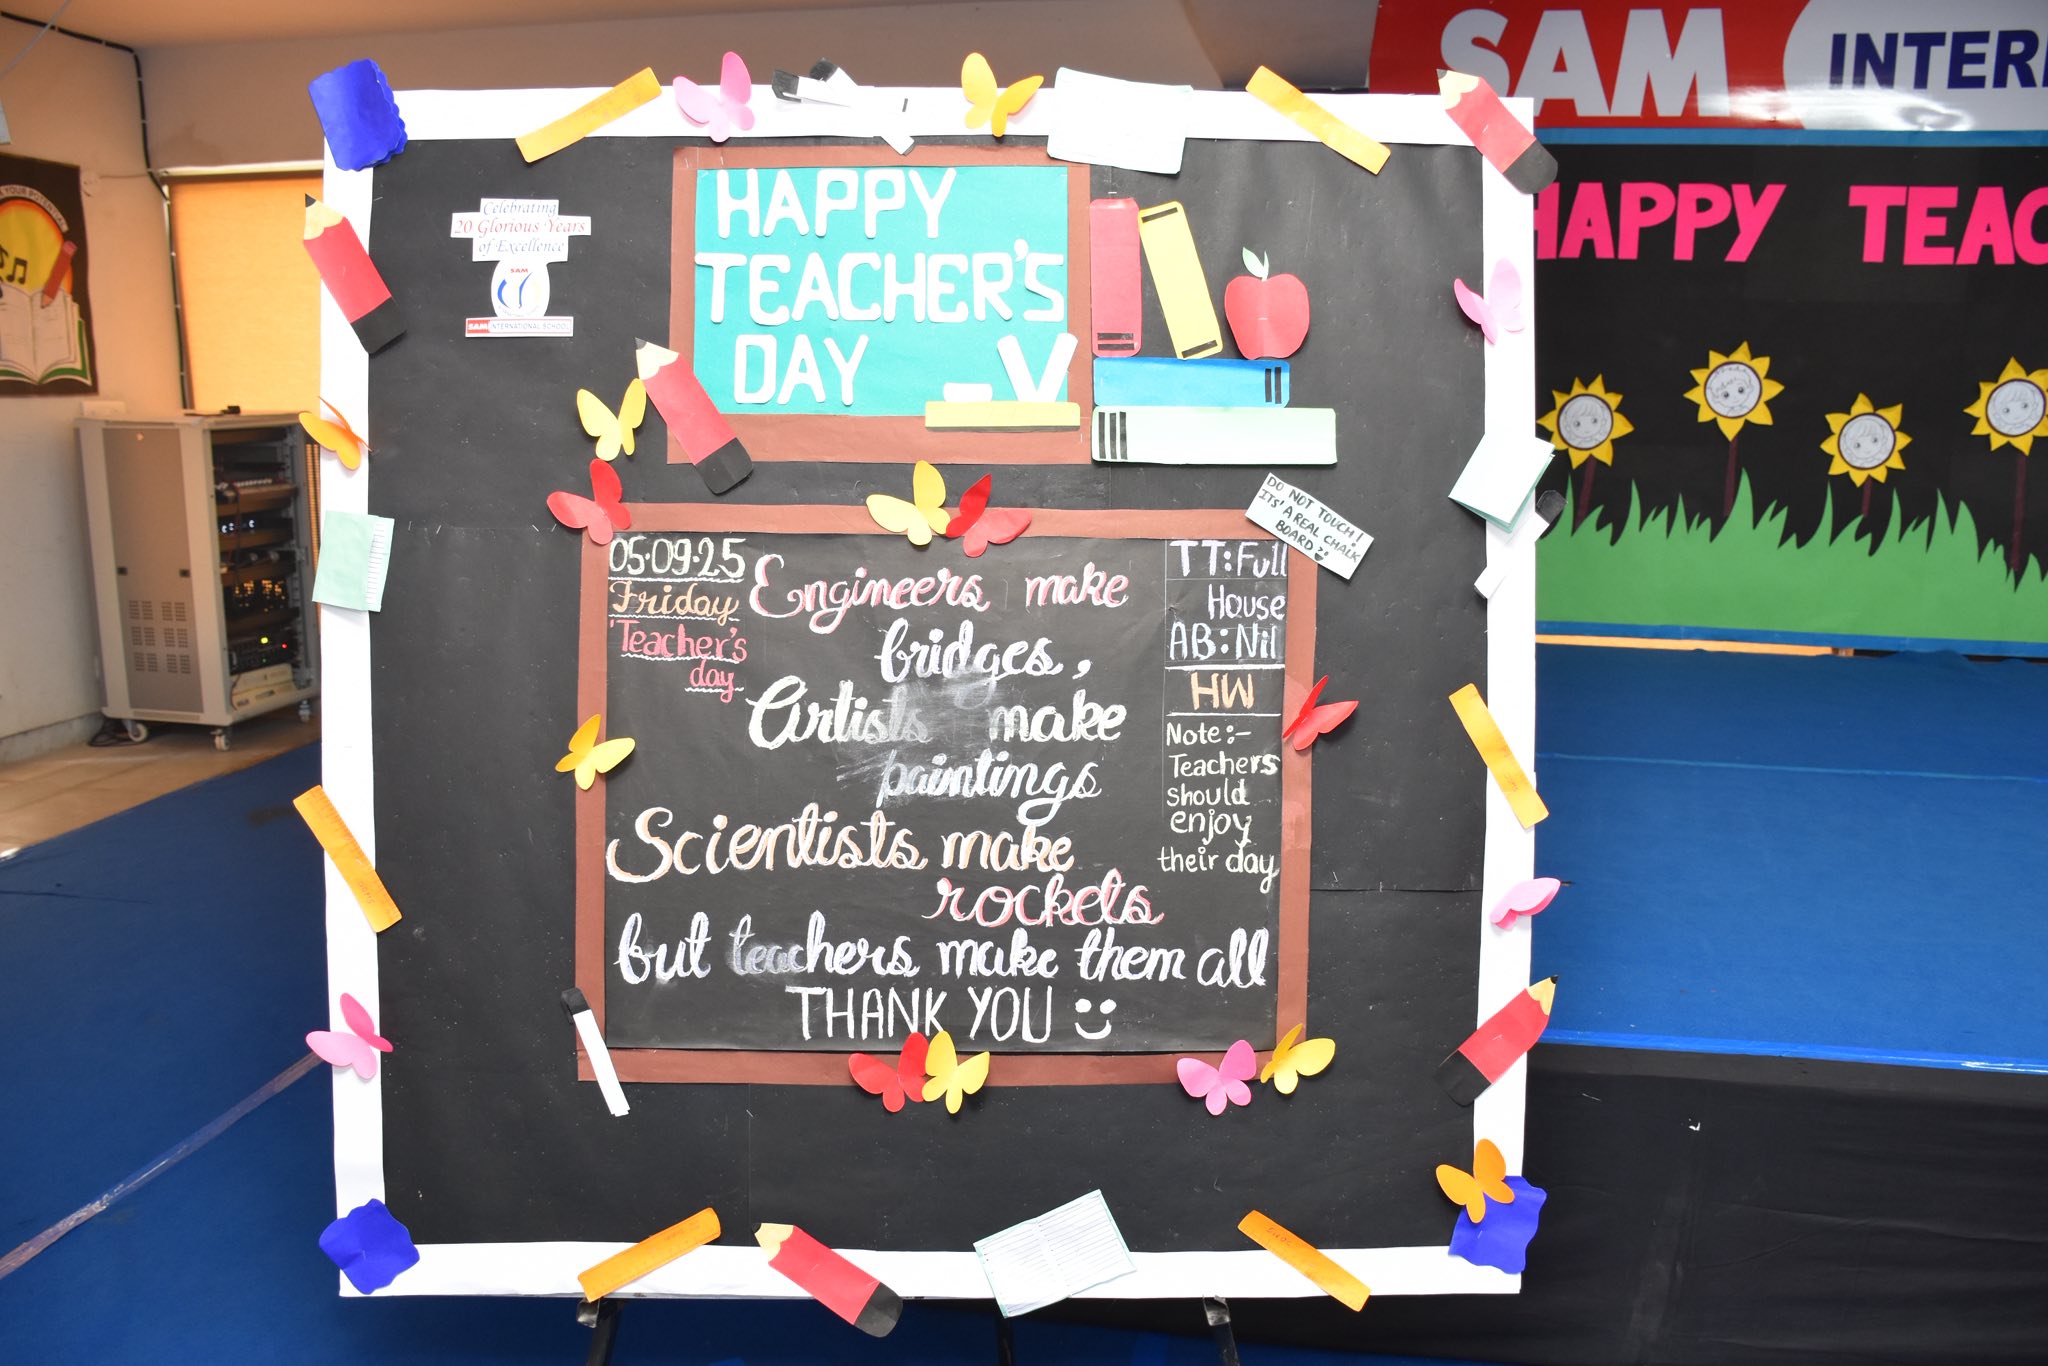 SAM
INTER
HAPPY TEAC
K YOUR POTENTIAL
Celebrating
20 Glorious Years
of Excellence
SAM
SAM INTERNATIONAL SCHOOL
HAPPY
TEACHER'S
DAY
DO NOT TOUCH!
ITS' A REAL CHALK
BOARD
05.09.25
Friday
'Teacher's
day
Engineers make
bridges,
Artists make
paintings
Scientists make
rockets
but teachers make them all
THANK YOU
TT:Full
House
AB:Nil
HW
Note:-
Teachers
should
enjoy
their day